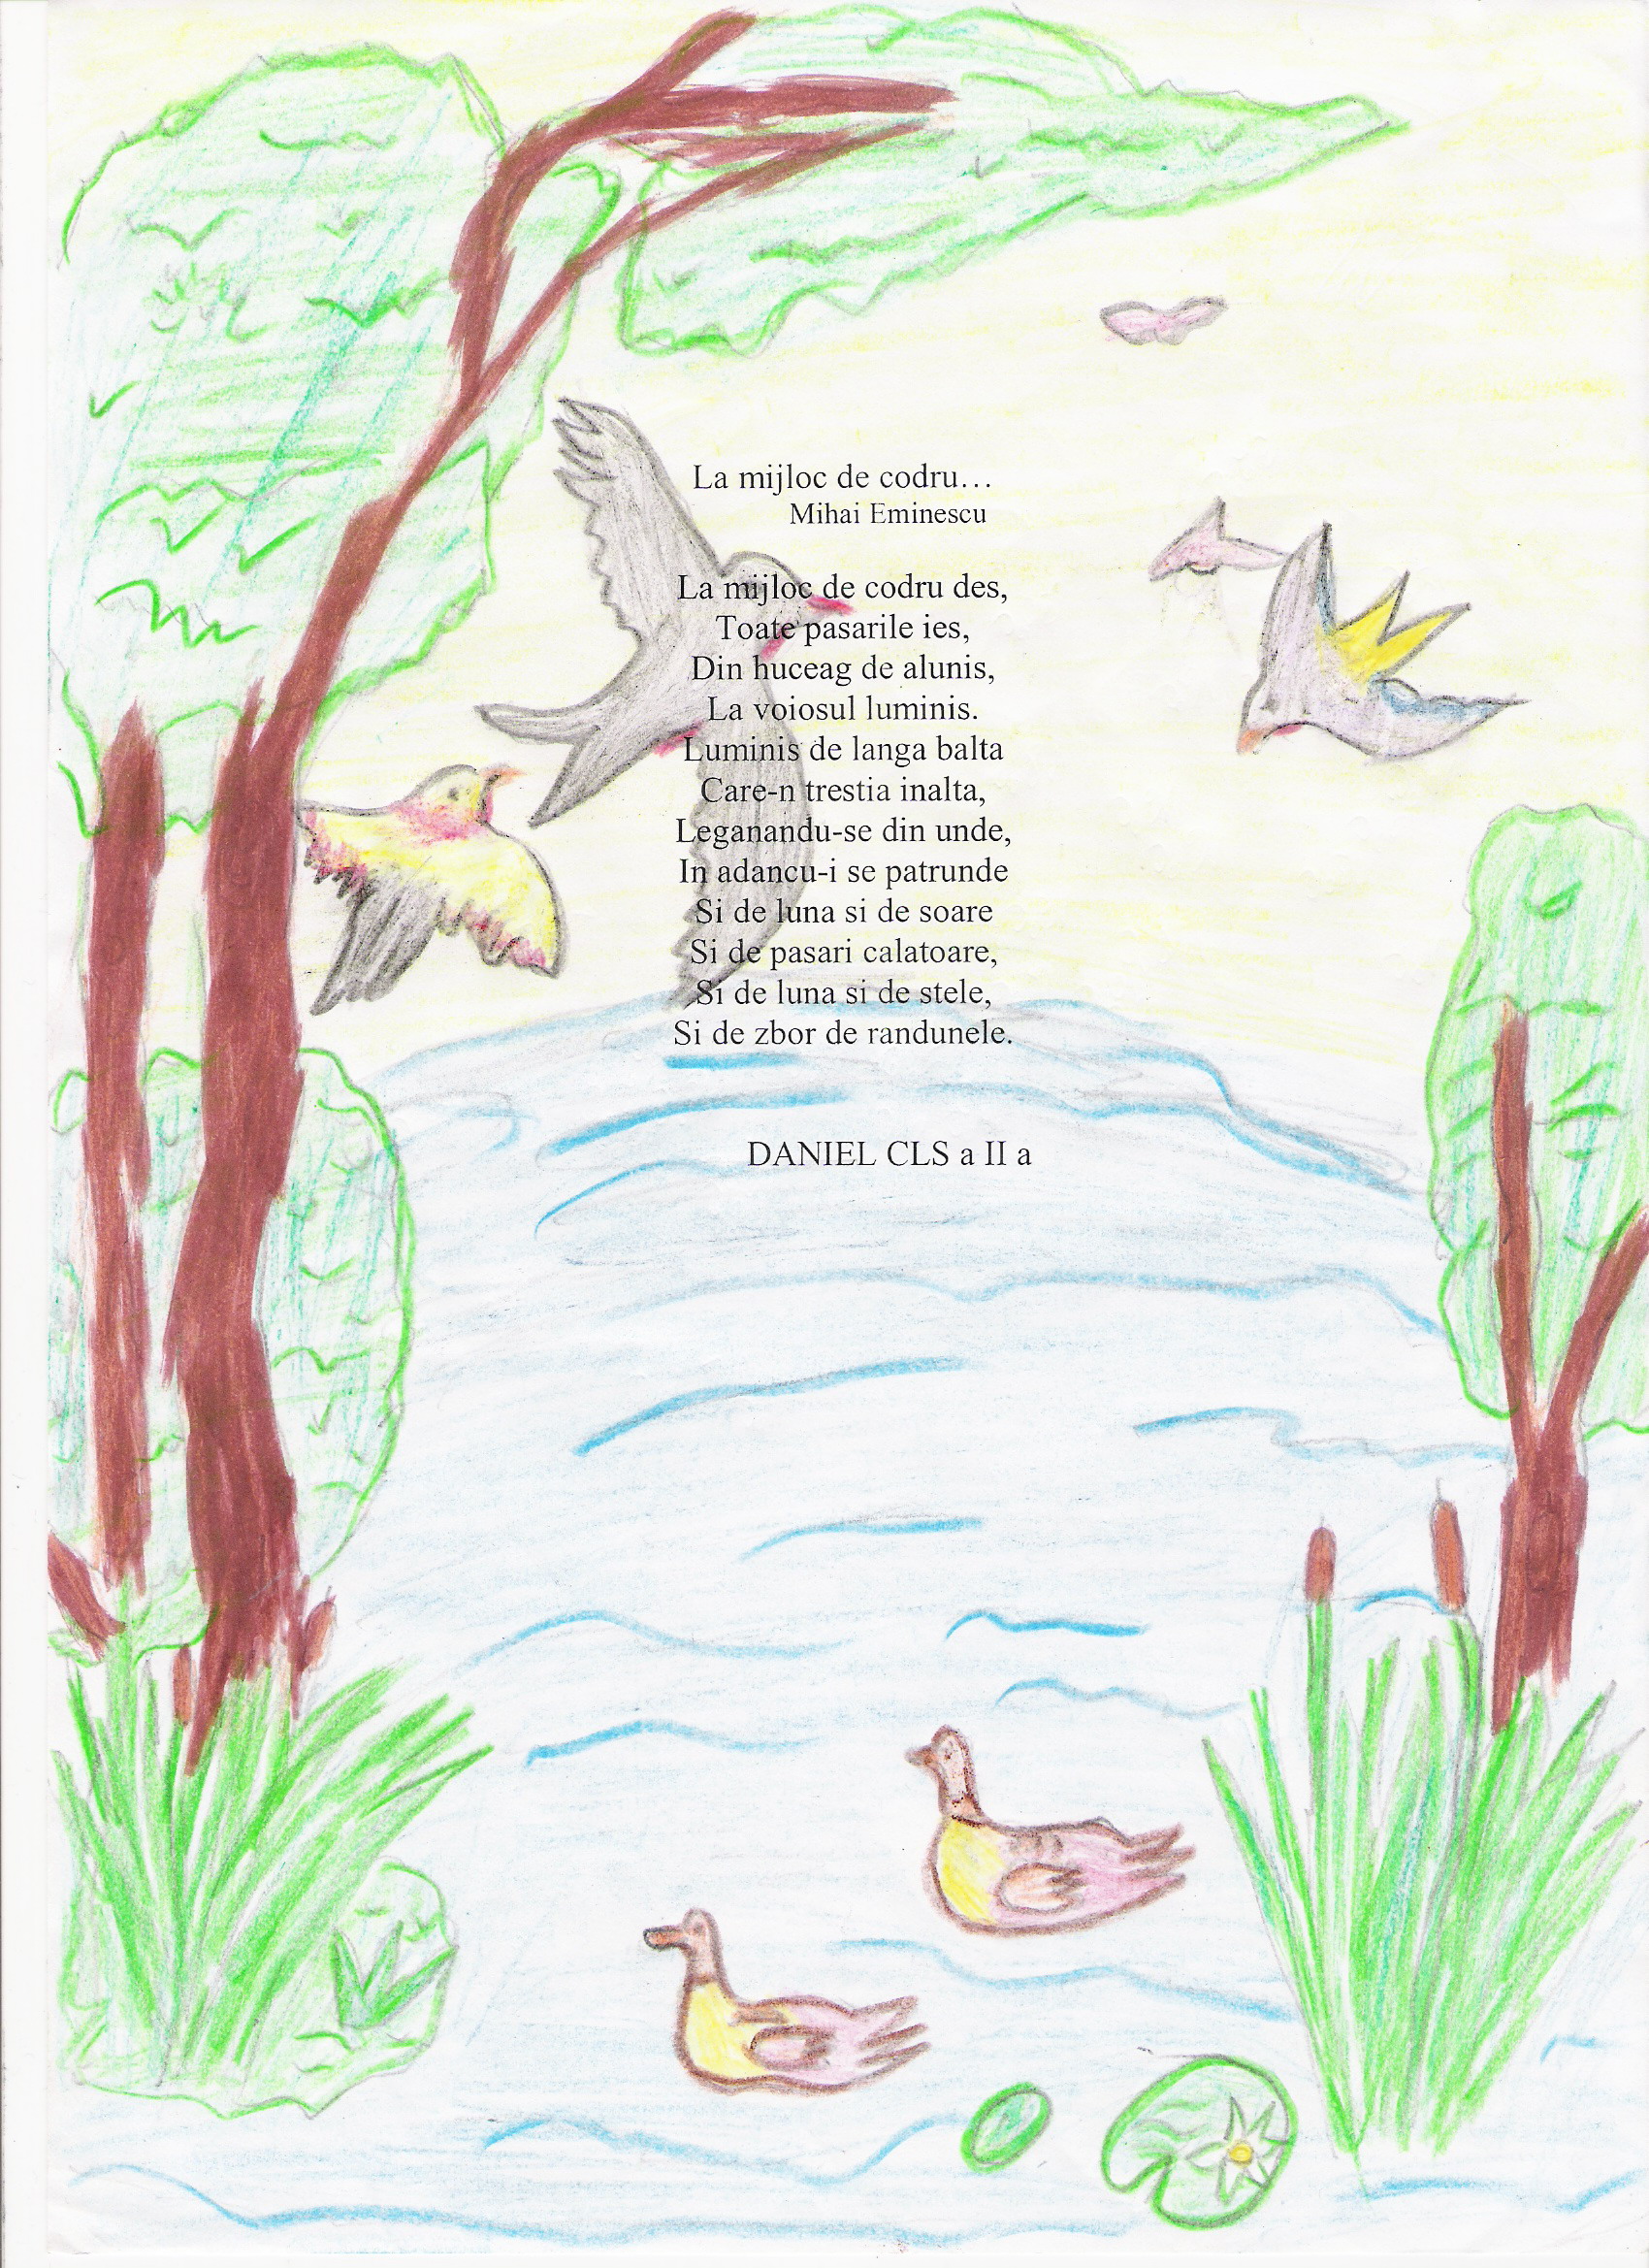 La mijloc de codru…
Mihai Eminescu
La mijloc de codru des,
Toate pasarile ies,
Din huceag de alunis,
La voiosul luminis.
Luminis de langa balta
Care-n trestia inalta,
Leganandu-se din unde,
In adancu-i se patrunde
Si de luna si de soare
Si de pasari calatoare,
Si de luna si de stele,
Si de zbor de randunele.
DANIEL CLS a II a